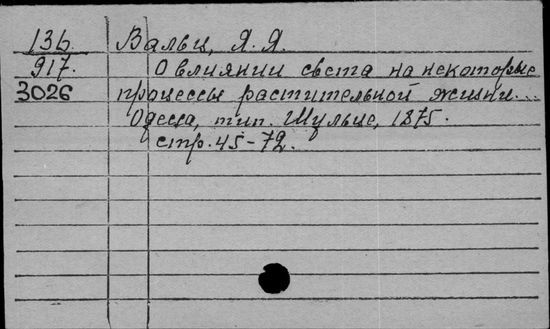 136. Вальц, Я. Я.
917. О влиянии света на некоторые
3026 процессы растительной жизни...
Одесса, тип. Шульце, 1875.
стр. 45-72.